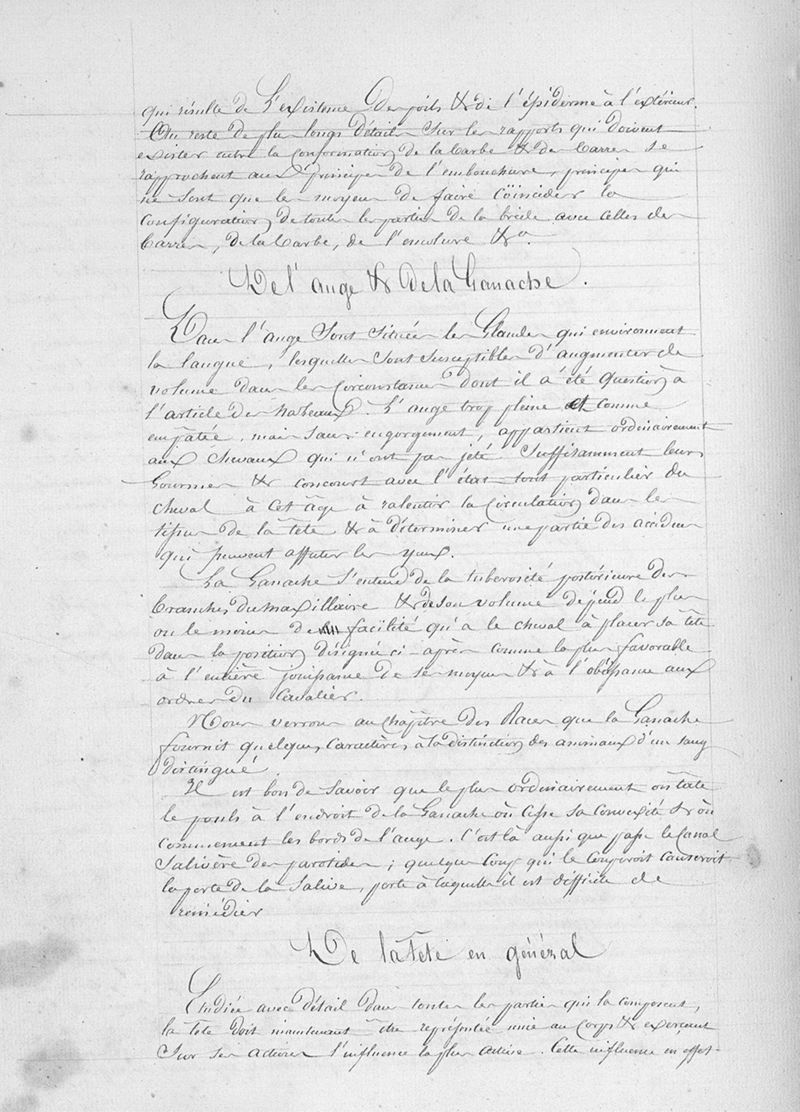 qui résulte de L'existence Des poils & de l'épiderme à l'extérieur.
Au reste de plus longs détails Sur les rapports qui doivent
exister entre la Conformation de la barbe & des barres se
rapprochent aux principes de l'embouchure, principes qui
ne sont que les moyens de faire coïncider la
configuration de toutes les parties de la bride avec celles des
barres, de la barbe, de l'encolure &a.
De l'auge & de la Ganache.
Dans l'auge Sont Situées les Glandes qui environnent
la langue, lesquelles sont susceptibles d'augmenter de
volume dans les Circonstances dont il a été question à
l'article des Naseaux. L'auge trop pleine et comme
empâtée, mais sans engorgement, appartient ordinairement
aux chevaux qui n'ont pas jeté Suffisamment leurs
Gourmes & concourt avec l'état tout particulier du
cheval à cet âge à ralentir la Circulation dans les
tissus de la tête & à déterminer une partie des accidens
qui peuvent affecter les yeux.
La Ganache s'entend de la tuberosité postérieure des
branches du maxillaire & de son volume dépend le plus
ou le moins de facilité qu'a le cheval à placer sa tête
dans la position désignée ci-après comme la plus favorable
à l'entière jouissance de ses moyens & à l'obéissance aux
ordres du Cavalier.
Nous verrons au chapitre des Races que la Ganache
fournit quelques Caractères à la distinction des animaux d'un sang
distingué.
Il est bon de savoir que le plus ordinairement on tâte
le pouls à l'endroit de la Ganache où cesse sa Convexité & où
commencent les bords de l'auge. C'est là aussi que passe le Canal
Salivère des parotides; quelque coup qui le Couperoit causeroit
la perte de la Salive, perte à laquelle il est difficile de
remédier
De la Tête en général
Etudiée avec détail dans toutes les parties qui la composent,
la tête doit maintenant être représentée unie au Corps & exerçant
Sur ses actions l'influence la plus active. Cette influence en effet